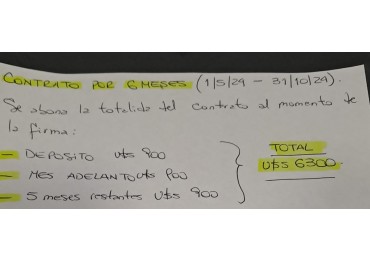 CONTRATO POR 6 MESES (1/5/24 - 31/10/24).
Se abona la totalidad del contrato al momento de
la firma:
- DEPOSITO U$S 900
- MES ADELANTO U$S 900
- 5 meses restantes U$S 900
TOTAL
U$S 6300.